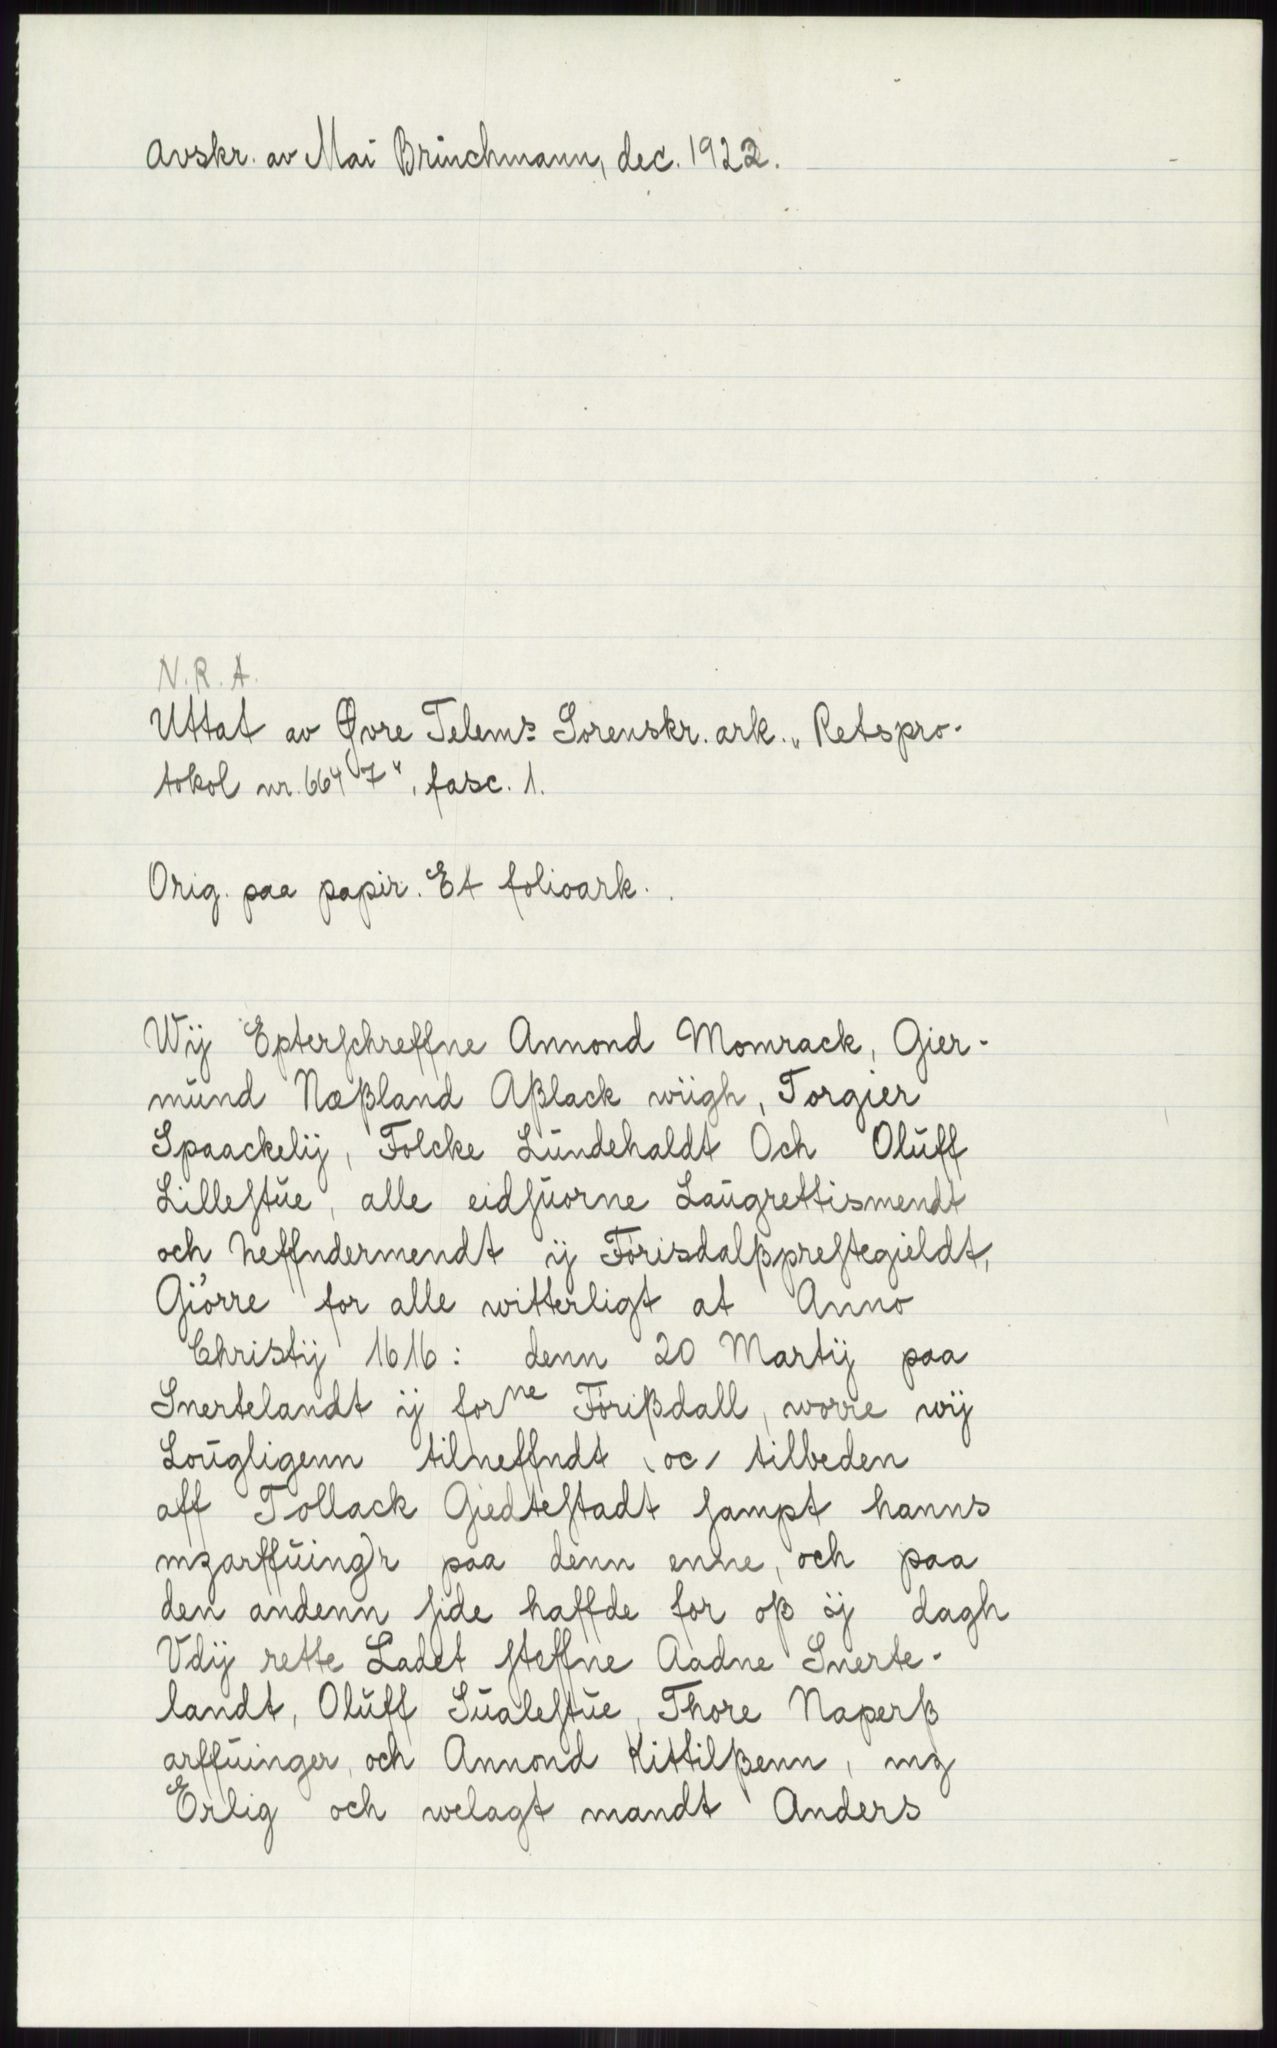 Avskr. av Mai Brinchmann, dec. 1922.
N.R.A.
Uttat av Øvre Telems Sorenskr. ark. „Retspro-
tokol nr. 664 7“, fasc. 1.
Orig. paa papir. Et folioark.
Wij Epterſchreffne Annond Momrack, Gier-
mŭnd Næßland Aßlack wiigh, Torgier
Spaackelij, Folcke Lŭndehaldt Och Olŭff
Lilleſtŭe, alle eidſŭorne Laŭgrettismendt
och neffndermendt ij Fórisdalßpreſtegieldt,
Giórre for alle witterligt at Anno
Christij 1616: denn 20 Martij paa
Snertelandt ij forne Fórißdall, worre wij
Loŭgligenn tilneffndt (oc) tilbeden
aff Tollack Giedteſtadt ſampt hanns
mzarffŭing)r paa denn enne, och paa
den andenn ſide haffde for oß ij dagh
Vdij rette Ladet ſteffne Aadne Snerte-
landt, Olŭff Sŭaleſtŭe, Thore Naperß
arffŭinger, och Annond Kittilßenn, mz
Erlig och welagt mandt Anders